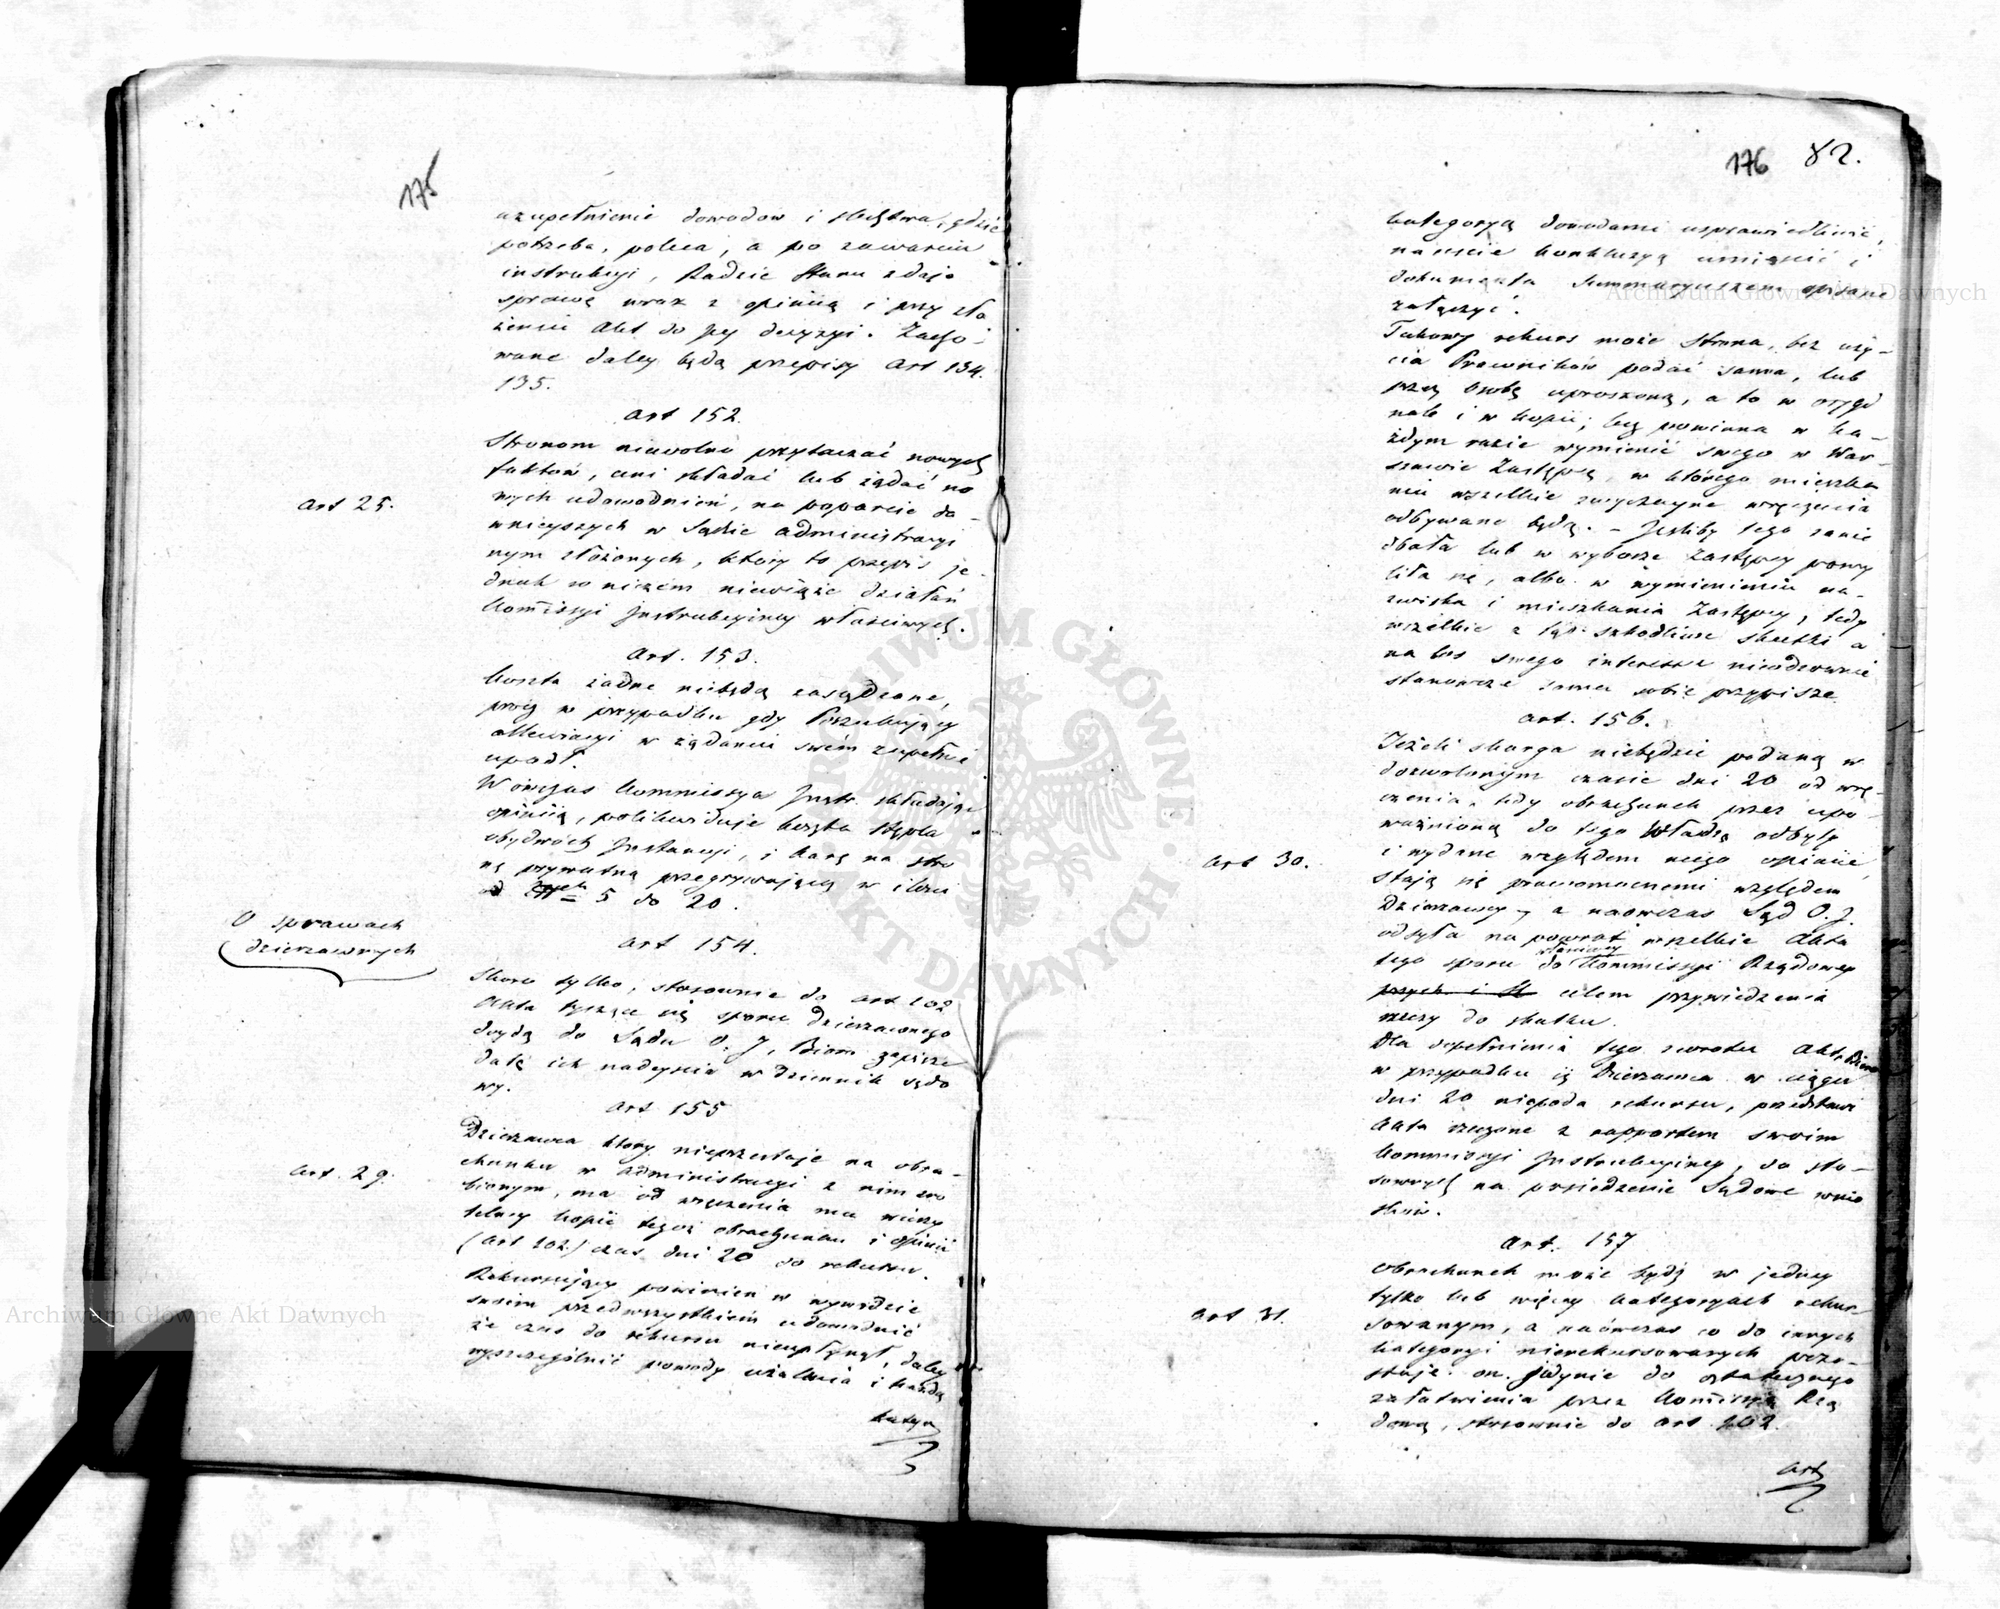 175
uzupełnienie dowodów i śledztwa, gdzie
potrzeba, poleca, a po zawarciu
instrukcyi, Radzie Stanu zdaje
sprawę wraz z opinią i przy zło
żeniu Akt do jey decyzyi. Zacho-
wane daley będą przepisy Art 134.
135.
Art 152.
Art 25.
Stronom niewolno przytaczać nowych
faktów, ani składać lub żądać no
wych udowodnień, na poparcie da-
wnieyszych w Sądzie administracyi
nym złożonych, który to przepis je-
dnak w niczem niewiąże działań
Kommissyi Instrukcyiney właściwych.
Art. 153.
Koszta żadne niebędą zasądzone,
prócz w przypadku gdy Poszukujący
allewiacyi w żądaniu swém zupełnie
upadł.
Wówczas Kommissya Instr. składając
opinią, polikwiduje koszta stępla
obydwóch Instancyi, i karę na stro
nę prywatną przegrywającą w ilości
od 5 do 20.
O sprawach
dzierzawnych
Art 154.
Skoro tylko, stosownie do Art 102
Akta tyczące się sporu dzierzawnego
doydą do Sądu O. J. Biuro zapisze
datę ich nadeyścia w dziennik sądo
wy.
Art 155
Art. 29.
Dzierzawca który nieprzestaje na obra-
chunku w Administracyi z nim zro
bionym, ma od wręczenia mu wierzy
telney kopii tegoż obrachunku i opinii
(Art 102.) czas dni 20 do rekursu.
Rekursujący powinien w wywodzie
swoim przedewszystkiém udowodnić
że czas do rekursu nieupłynął, daley
wyszczególnić powody użalenia i każdą
kateg
176 82.
kategoryą dowodami usprawiedliwić,
nareście konkluzyą umieścić i
dokumenta Summaryuszem opisane
załączyć.
Takowy rekurs może Strona, bez uży-
cia Prawników podać sama, lub
przez osobę uproszoną, a to w orygi
nale i w kopii; lecz powinna w ka-
żdym razie wymienić swego w War-
szawie Zastępcę, w którego mieszka
niu wszelkie zwyczayne wręczenia
odbywane będą. – Jeśliby tego zanie
dbała lub w wyborze Zastępcy pomy
liła się, albo w wymienieniu na-
zwiska i mieszkania Zastępcy, tedy
wszelkie z tąd szkodliwe skutki
na los swego interessu nieodzownie
stanowcze sama sobie przypisze.
Art. 156.
Jeżeli skarga niebędzie podaną w
dozwolonym czasie dni 20 od wrę-
czenia, tedy obrachunek przez upo-
ważnioną do tego Władzę odbyty
Art 30.
i wydane względem niego opinie,
stają się prawomocnemi względem
Dzierzawcy, a naówczas Sąd O. J.
odsyła na powrót wszelkie Akta
tego sporu do Kommissyi Rządowey
celem przywiedzenia
rzeczy do skutku.
Dla dopełnienia tego zwrotu Akt, Biuro
w przypadku iż Dzierzawca w ciągu
dni 20 niepoda rekursu, przedstawi
Akta rzeczone z rapportem swoim
Kommissyi Instrukcyiney, do sto-
sownych na posiedzenie Sądowe wnio
sków.
Art. 157
Obrachunek może bydź w jedney
Art 31.
tylko lub więcey kategoryach rekur-
sowanym, a naówczas co do innych
kategoryi nierekursowanych pozo-
staje on jedynie do ostatecznego
załatwienia przez Kommissyą Rzą
dową, stosownie do Art 102.
Art